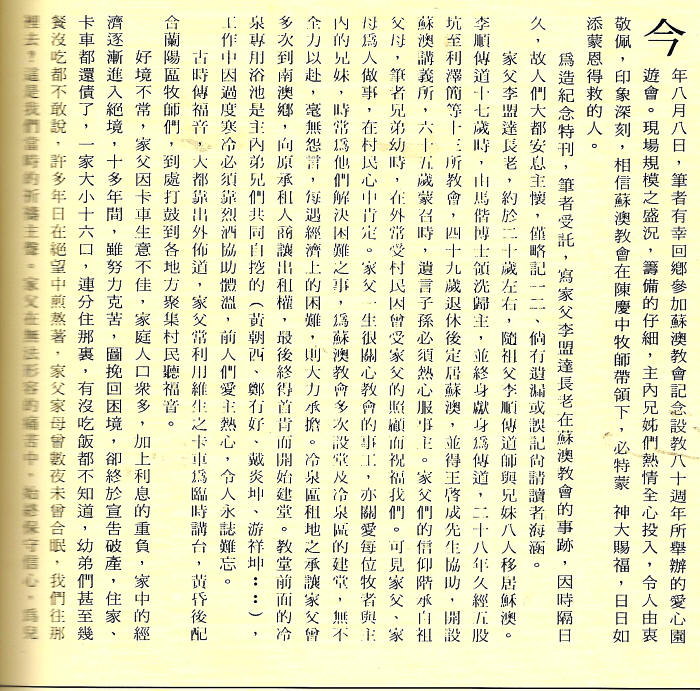 今年八月八日，筆者有幸回鄉參加蘇澳教會記念設教八十週年所舉辦的愛心園
遊會。現場規模之盛況，籌備的仔細，主內兄姊們熱情全心投入，令人由衷
敬佩，印象深刻，相信蘇澳教會在陳慶中牧師帶領下，必特蒙　神大賜福，日日如
添蒙恩得救的人。
為造紀念特刊，筆者受託，寫家父李盟達長老在蘇澳教會的事跡，因時隔日
久，故人們大都安息主懷，僅略記一二、倘有遺漏或誤記尚請讀者海涵。
家父李盟達長老，約於二十歲左右，隨祖父李順傳道師與兄妹八人移居蘇澳。
李順傳道十七歲時，由馬偕博士領洗歸主，並終身獻身為傳道，二十八年久經五股
坑至利澤簡等十三所教會，四十九歲退休後定居蘇澳，並得王啓成先生協助，開設
蘇澳講義所，六十五歲蒙召時，遺言子孫必須熱心服事主。家父們的信仰階承自祖
父母，筆者兄弟幼時，在外常受村民因曾受家父的照顧而祝福我們。可見家父、家
母為人做事，在村民心中肯定。家父一生很關心教會的事工，亦關愛每位牧者與主
內的兄妹，時常為他們解決困難之事，為蘇澳教會多次設堂及冷泉區的建堂，無不
全力以赴，毫無怨言，每遇經濟上的困難，則大力承擔。冷泉區租地之承讓家父曾
多次到南澳鄉，向原承租人商讓出租權，最後終得首肯而開始建堂。教堂前面的冷
泉專用浴池是主內弟兄們共同自挖的（黃朝西、鄭石好、戴炎坤、游祥坤⋯⋯），
工作中因過度寒冷必須靠烈酒協助體溫，前人們愛主熱心，令人永誌難忘。
古時傳福音，大都靠出外佈道，家父常利用維生之卡車為臨時講台，黃昏後配
合蘭陽區牧師們，到處打鼓到各地方聚集村民聽福音。
好境不常，家父因卡車生意不佳，家庭人口衆多，加上利息的重負，家中的經
濟逐漸進入絕境，十多年間，雖努力克苦，圖挽回困境，卻終於宣告破產，住家、
卡車都還債了，一家大小十六口，連分住那裏，有沒吃飯都不知道，幼弟們甚至幾
餐沒吃都不敢說，許多年日在絕望中煎熬著，家父家母曾數夜未曾合眠，我們往那
裡去？這是我們當時的祈禱主聲。家父在無法形容的痛苦中，始終保守信心，為兒